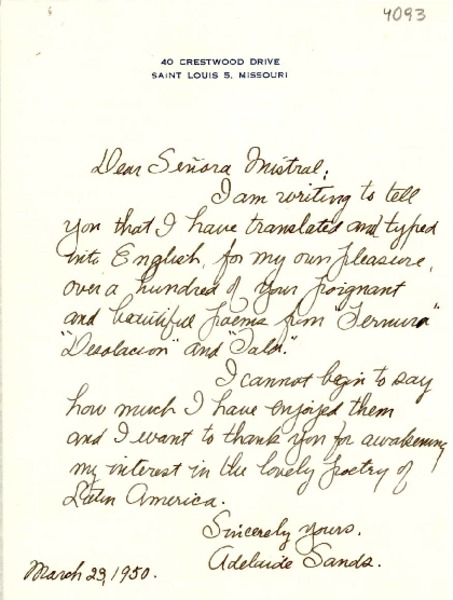 4093
40 CRESTWOOD DRIVE
SAINT LOUIS 5, MISSOURI
Dear Señora Mistral,
I am writing to tell
you that I have translated and typed
into English, for my own pleasure,
over a hundred of your poignant
and beautiful poems from "Ternura"
"Desolacion" and "Tala."
I cannot begin to say
how much I have enjoyed them
and I want to thank you for awakening
my interest in the lovely poetry of
Latin America.
Sincerely yours,
Adelaide Sands.
March 23, 1950.